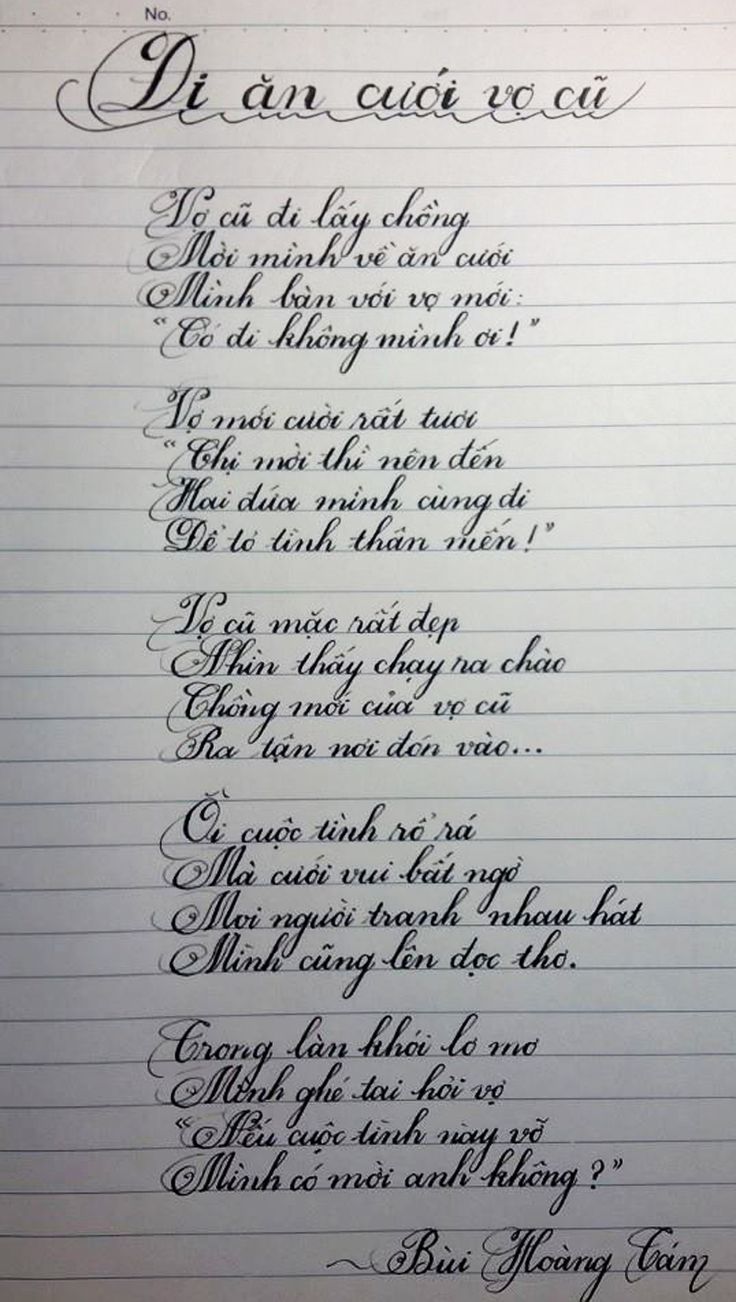 No.
Đi ăn cưới vợ cũ
Vợ cũ đi lấy chồng
Mời mình về ăn cưới
Mình bàn với vợ mới:
"Có đi không mình ơi!"
Vợ mới cười rất tươi
"Chị mời thì nên đến
Hai đứa mình cùng đi
Để tỏ tình thân mến!"
Vợ cũ mặc rất đẹp
Nhìn thấy chạy ra chào
Chồng mới của vợ cũ
Ra tận nơi đón vào...
Ồi cuộc tình rổ rá
Mà cưới vui bất ngờ
Mọi người tranh nhau hát
Mình cũng lên đọc thơ.
Trong làn khói lơ mơ
Mình ghé tai hỏi vợ
"Nếu cuộc tình này vỡ
Mình có mời anh không?"
~ Bùi Hoàng Tám